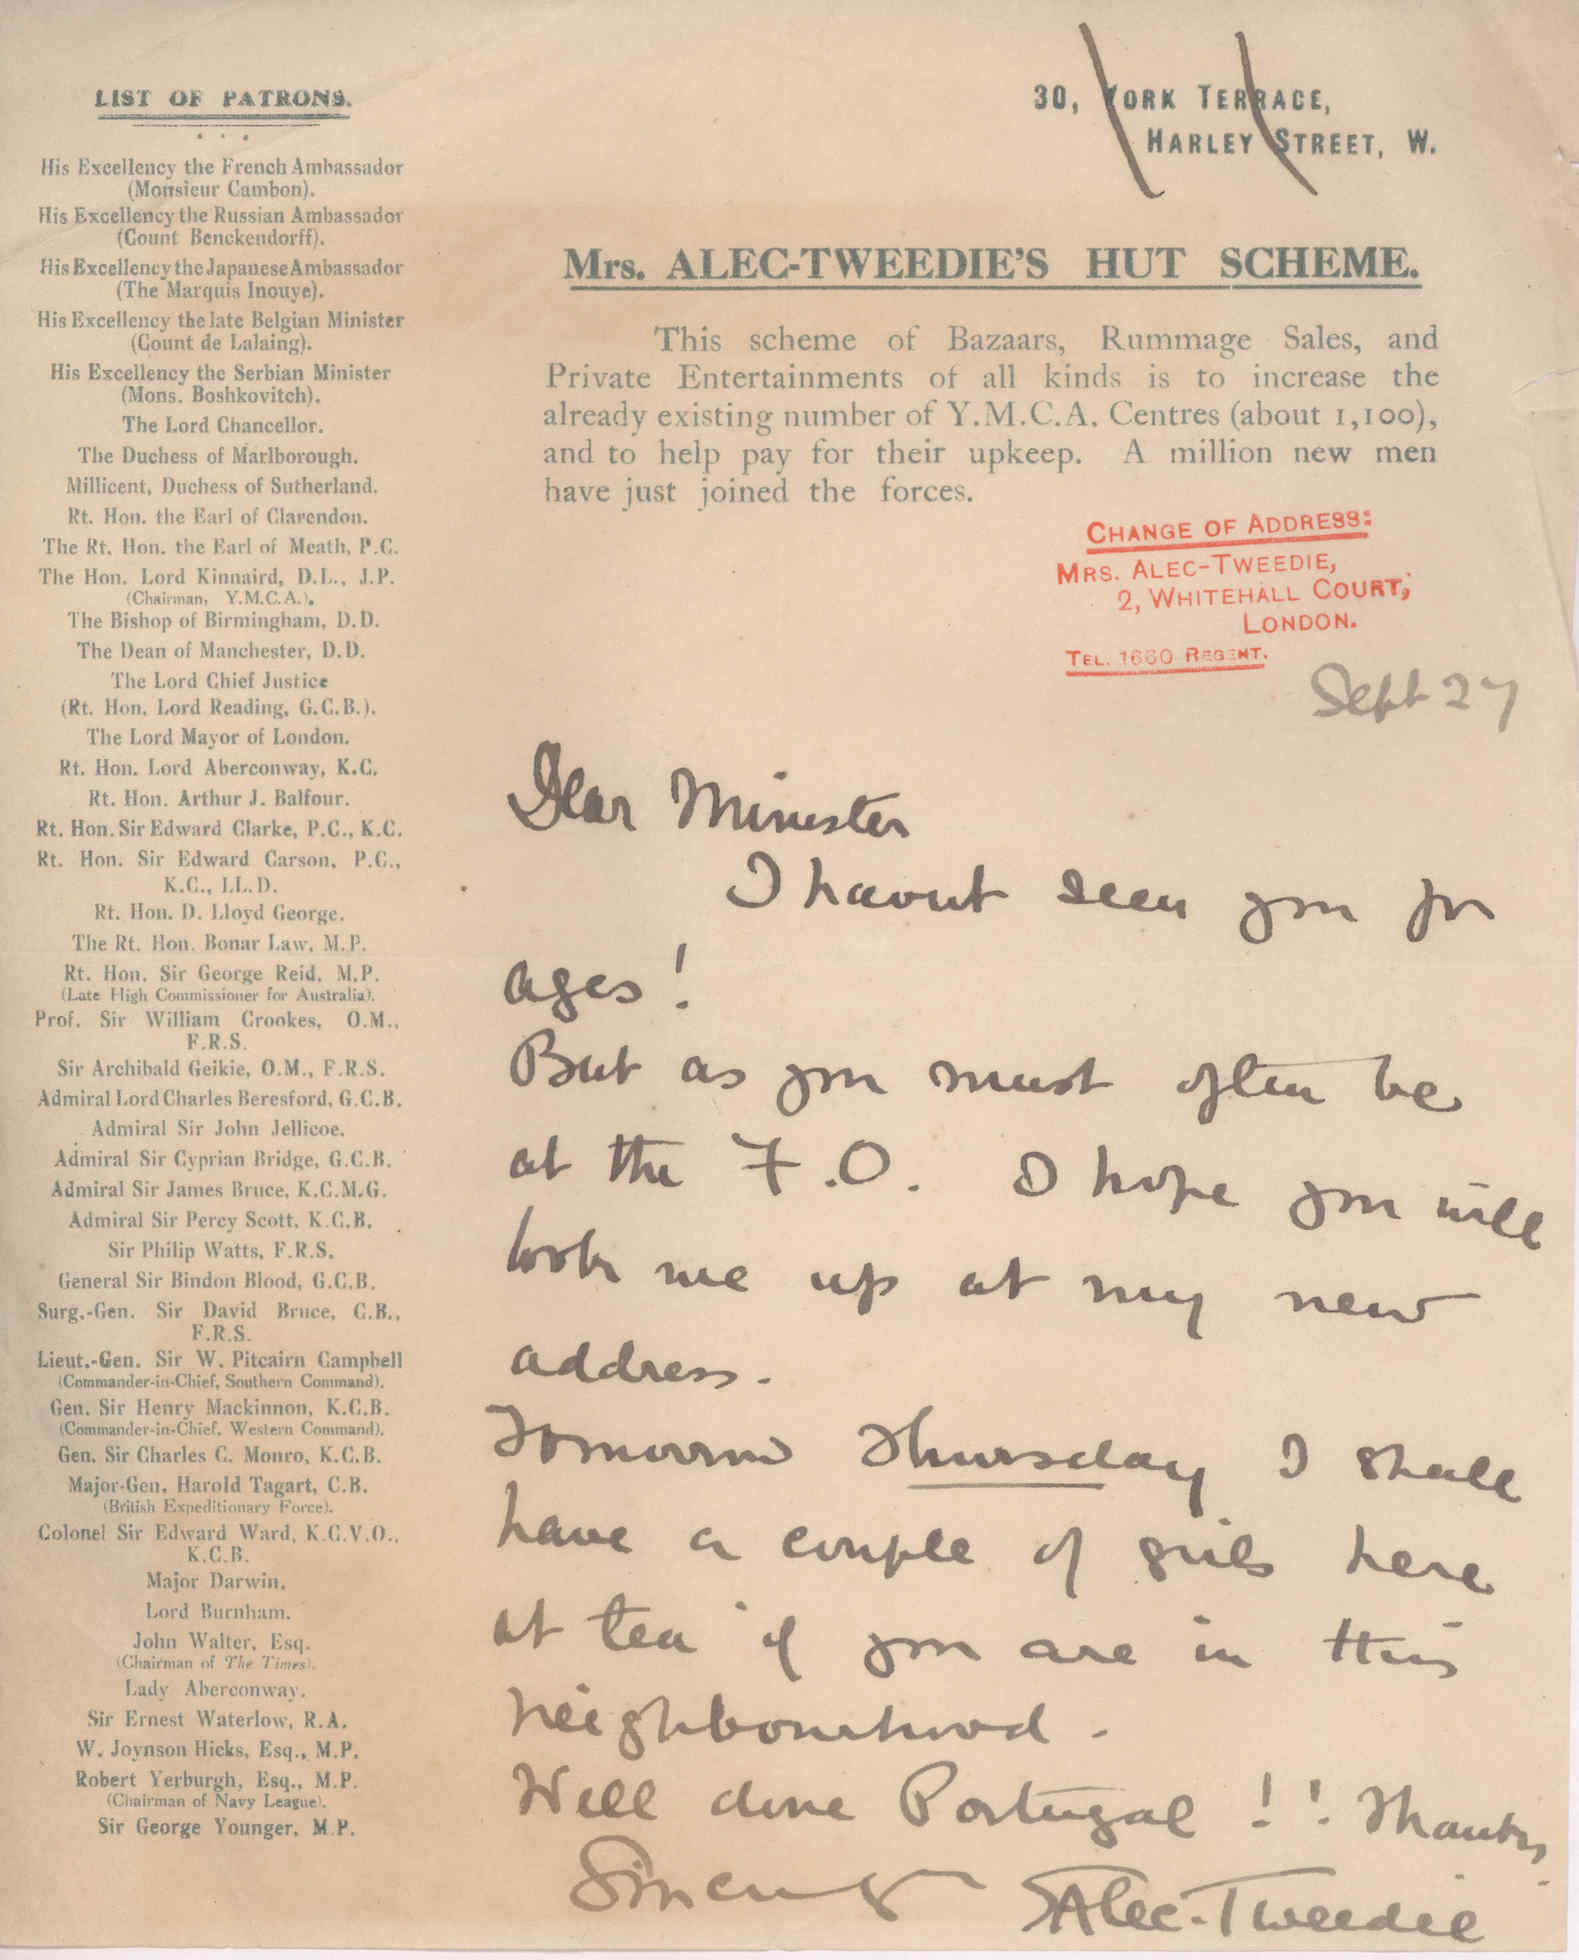 LIST OF PATRONS.
His Excellency the French Ambassador
(Monsieur Cambon).
His Excellency the Russian Ambassador
(Count Benckendorff).
His Excellency the Japanese Ambassador
(The Marquis Inouye).
His Excellency the late Belgian Minister
(Count de Lalaing).
His Excellency the Serbian Minister
(Mons. Boshkovitch).
The Lord Chancellor.
The Duchess of Marlborough.
Millicent, Duchess of Sutherland.
Rt. Hon. the Earl of Clarendon.
The Rt. Hon. the Earl of Meath, P.C.
The Hon. Lord Kinnaird, D.L., J.P.
(Chairman, Y.M.C.A.).
The Bishop of Birmingham, D.D.
The Dean of Manchester, D.D.
The Lord Chief Justice
(Rt. Hon. Lord Reading, G.C.B.).
The Lord Mayor of London.
Rt. Hon. Lord Aberconway, K.C.
Rt. Hon. Arthur J. Balfour.
Rt. Hon. Sir Edward Clarke, P.C., K.C.
Rt. Hon. Sir Edward Carson, P.C.,
K.C., LL.D.
Rt. Hon. D. Lloyd George.
The Rt. Hon. Bonar Law, M.P.
Rt. Hon. Sir George Reid, M.P.
(Late High Commissioner for Australia).
Prof. Sir William Crookes, O.M.,
F.R.S.
Sir Archibald Geikie, O.M., F.R.S.
Admiral Lord Charles Beresford, G.C.B.
Admiral Sir John Jellicoe.
Admiral Sir Cyprian Bridge, G.C.B.
Admiral Sir James Bruce, K.C.M.G.
Admiral Sir Percy Scott, K.C.B.
Sir Philip Watts, F.R.S.
General Sir Bindon Blood, G.C.B.
Surg.-Gen. Sir David Bruce, C.B.,
F.R.S.
Lieut.-Gen. Sir W. Pitcairn Campbell
(Commander-in-Chief, Southern Command).
Gen. Sir Henry Mackinnon, K.C.B.
(Commander-in-Chief, Western Command).
Gen. Sir Charles C. Monro, K.C.B.
Major-Gen. Harold Tagart, C.B.
(British Expeditionary Force).
Colonel Sir Edward Ward, K.C.V.O.,
K.C.B.
Major Darwin.
Lord Burnham.
John Walter, Esq.
(Chairman of The Times).
Lady Aberconway.
Sir Ernest Waterlow, R.A.
W. Joynson Hicks, Esq., M.P.
Robert Yerburgh, Esq., M.P.
(Chairman of Navy League).
Sir George Younger, M.P.
30, YORK TERRACE,
HARLEY STREET, W.
Mrs. ALEC-TWEEDIE'S HUT SCHEME.
This scheme of Bazaars, Rummage Sales, and
Private Entertainments of all kinds is to increase the
already existing number of Y.M.C.A. Centres (about 1,100),
and to help pay for their upkeep. A million new men
have just joined the forces.
CHANGE OF ADDRESS:
MRS. ALEC-TWEEDIE,
2, WHITEHALL COURT,
LONDON.
TEL. 1660 REGENT.
Sept 27
Dear Minister
I havent seen you for
ages!
But as you must often be
at the F.O. I hope you will
look me up at my new
address.
Tomorrow Thursday I shall
have a couple of girls here
at tea if you are in this
neighbourhood.
Well done Portugal!! Thanks.
Sincerely
E Alec-Tweedie